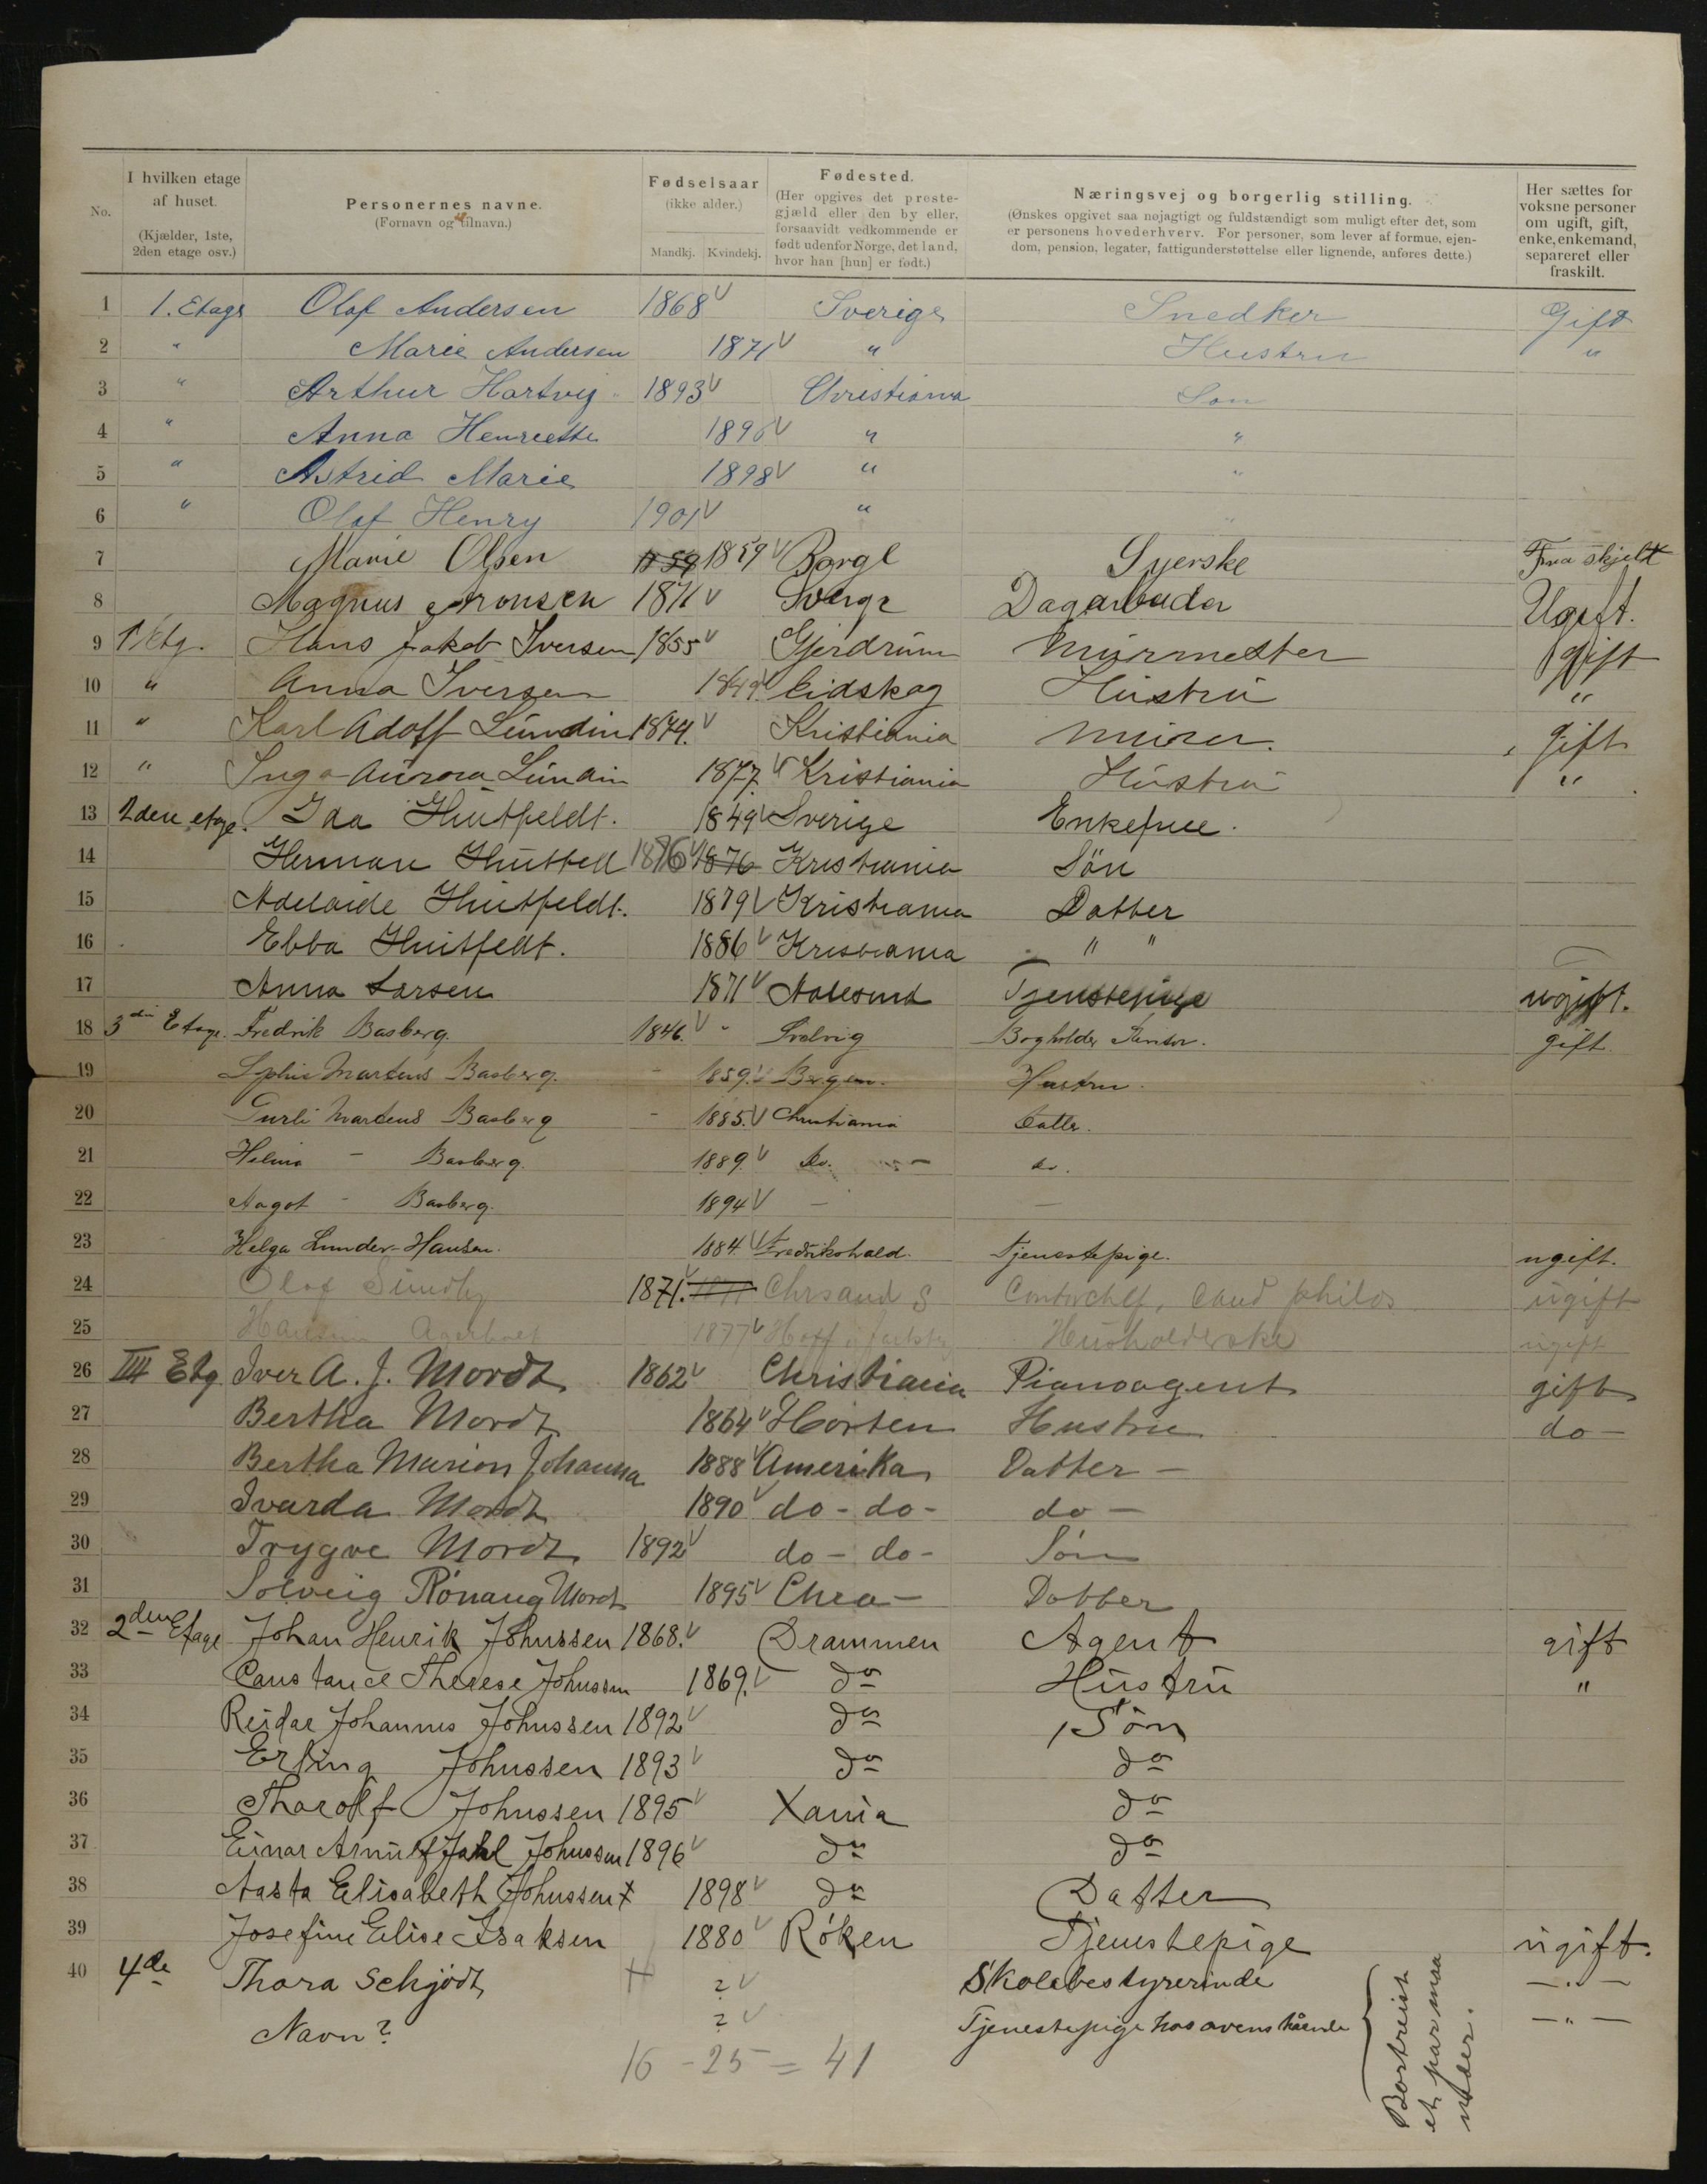 No.
I hvilken etage af huset. (Kjælder, 1ste, 2den etage osv.)
Personernes navne. (Fornavn og tilnavn.)
Fødselsaar (ikke alder.) Mandkj. Kvindekj.
Fødested. (Her opgives det prestegjæld eller den by eller, forsaavidt vedkommende er født udenfor Norge, det land, hvor han [hun] er født.)
Næringsvej og borgerlig stilling. (Ønskes opgivet saa nøjagtigt og fuldstændigt som muligt efter det, som er personens hovederhverv. For personer, som lever af formue, ejendom, pension, legater, fattigunderstøttelse eller lignende, anføres dette.)
Her sættes for voksne personer om ugift, gift, enke, enkemand, separeret eller fraskilt.
1 1. Etage Olaf Andersen 1868 Sverige Snedker Gift
2 " Marie Andersen 1871 " Hustru "
3 " Arthur Hartvig " 1893 Christiania Son
4 " Anna Henriette 1896 " "
5 " Astrid Marie 1898 " "
6 " Olaf Henry 1901 " "
7 Marie Olsen 1859 1859 Borge Syerske Fraskjelt
8 Magnus Aronsen 1871 Sverge Dagarbeider Ugift.
9 1 Etg. Hans Jakob Iversen 1855 Gjerdrum Murmester gift
10 " Anna Iversen 1849 Eidskog Hustru "
11 " Karl Adolf Lundin 1874. Kristiania Murer. gift
12 " Inga Aurora Lundin 1877. Kristiania Hustru "
13 2den etage. Ida Huitfeldt. 1849 Sverige Enkefrue.
14 Herman Huitfeldt 1876 1876 Kristiania Sön
15 Adelaide Huitfeldt. 1879 Kristiania Datter
16 Ebba Huitfeldt. 1886 Kristiania " "
17 Anna Larsen 1871 Aalesund Tjenstepige ugift.
18 3die Etage. Fredrik Basberg. 1846. Bogholder gift.
19 Sophie Martens Basberg. 1859. Bergen. Hustru.
20 Martens Basberg 1885. Christiania Datter.
21 Helma - Basberg. 1889. Do. do.
22 Aagot - Basberg. 1894 - -
23 Helga Lunder-Hansen. 1884 Fredrikshald. Tjenestepige. ugift.
24 Olaf Sundby 1871. 1871 Chrsand S Contorchef, Cand philos ugift
25 1877 Husholderske ugift
26 III Etg Iver A. J. Mordt 1862 Christiania Pianoagent gift
27 Bertha Mordt 1864 Horten Hustru do -
28 Bertha Marion Johanna 1888 Amerika Datter -
29 Ivarda Mordt 1890 do - do - do -
30 Trygve Mordt 1892 do - do - Sön
31 Solveig Rónaug Mordt 1895 Chra - Datter
32 2den Etage Johan Henrik Johnssen 1868. Drammen Agent gift
33 Constance Therese Johnssen 1869. do Hustru "
34 Reidar Johannes Johnssen 1892 do Sön
35 Erling Johnssen 1893 do do
36 Thorolf Johnssen 1895 Xania do
37 Einar Arnulf Johnssen 1896 do do
38 Aasta Elisabeth Johnssen x 1898 do Datter
39 Josefine Elise Isaksen 1880 Röken Tjenestepige ugift.
40 4de Thora Schjödt ? Skolebestyrerinde - " -
Navn? ? Tjenestepige hos ovenstående - " -
Bortreist et par maaneder.
16 - 25 = 41